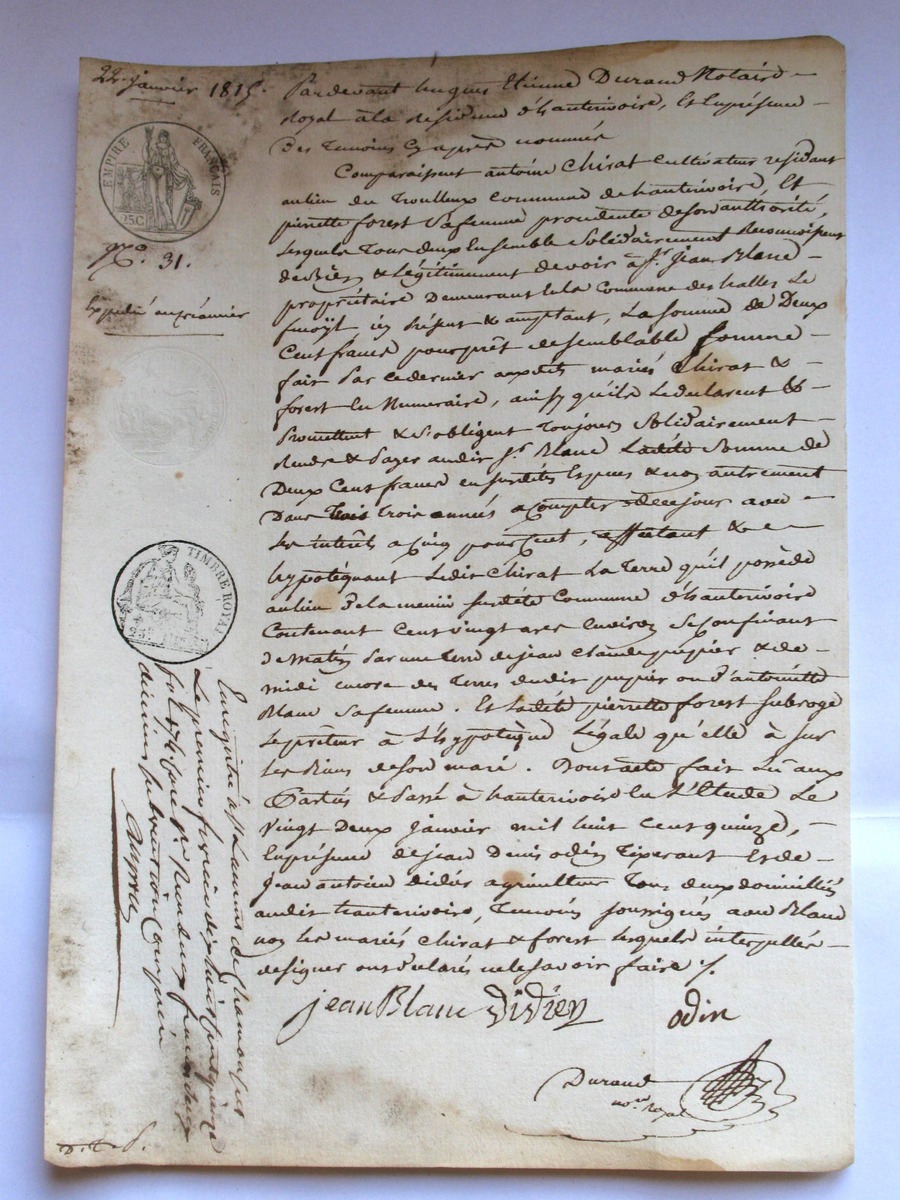 22. janvier 1815.
EMPIRE FRANÇAIS
25C
No. 31.
Expédié au créancier
TIMBRE ROYAL
Pardevant hugues Etienne Durand Notaire
Royal à la Residence d'hauterivoire, Et En présence
Des Temoins Cy après nommés
Comparaissent antoine Chirat Cultivateur residant
au lieu du Trouilleux Commune de hauterivoire, Et
pierrette forest Sa femme procedente de son authorité,
Lesquels Tous deux Ensemble Solidairement Reconnoissent
de bien & Légitimement devoir à Sr. Jean Blanc
propriétaire Demeurant la Commune des halles Le
fenoÿl icy présent & acceptant, La somme de Deux
Cent francs pour prêt de semblable somme
fait par ce dernier auxdits mariés Chirat &
forest En Numeraire, ainsy qu'ils Le declarent &
Promettent & S'obligent Toujours Solidairement
Rendre & payer audit Sr. Blanc Ladite Somme de
Deux Cent francs en susdites Especes & non autrement
Dans trois années a Compter de ce jour avec
Les intérêts a Cinq pour Cent, affectant &
hypotéquant Ledit Chirat La Terre qu'il possède
au lieu de la susdite Commune d'hauterivoire
Contenant Cent vingt ares Environ Se Confinant
De matin par une Terre de jean Claude pupier & de
midi encore des Terres dudit pupier ou d'antoinette
Blanc Sa femme. Et Ladite pierrette forest Subroge
Le prêteur à L'hypotèque Légale qu'elle à sur
Les Biens de son mari. Dont acte fait Lu aux
Parties & Passé à hauterivoire En L'Etude Le
Vingt Deux janvier mil huit Cent quinze,
En présence de jean Denis odin Tixerant Et de
Jean antoine Didier agriculteur Tous deux domiciliés
audit hauterivoire, Temoins soussignés avec Blanc
non Les mariés Chirat & forest Lesquels interpellés
de signer ont Declarés ne le savoir faire ./.
jean Blanc Didier odin
Durand
nore. Royal
Enregistré à St Laurent de Chamousset
Le premier fevrier dix huit Cent quinze
fol. 174 Reçu deux francs deux
decimes subvention Comprise
D. T. P.